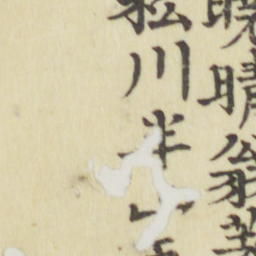 曉晴翁著
松川半山